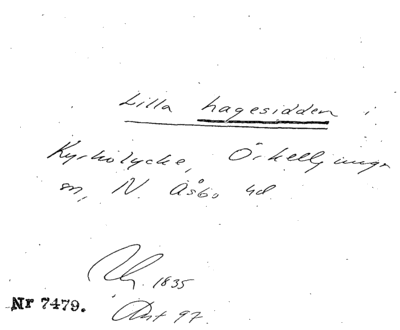 Lilla hagesidden i
Kyrkolycke, Örkelljunga
sn, N. Åsbo hd
1835
Nr 7479.
Ant 97.